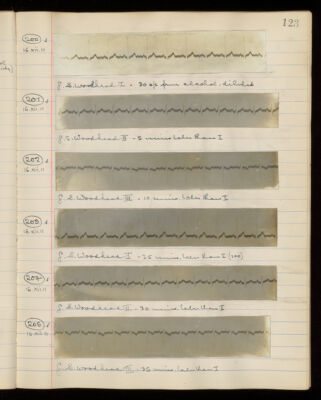 123
200
16.xii.11
G. S. Woodhead I - 30 c/c pure alcohol diluted
201
16.xii.11
G. S. Woodhead II - 5 mins later than I
202
16.xii.11
G. S. Woodhead III - 10 mins. later than I
16.xii.11
G. S. Woodhead I - 25 mins. later than I (200)
207
16.xii.11
G. S. Woodhead II - 30 mins. later than I
16.xii.11
G. S. Woodhead III - 35 mins. later than I